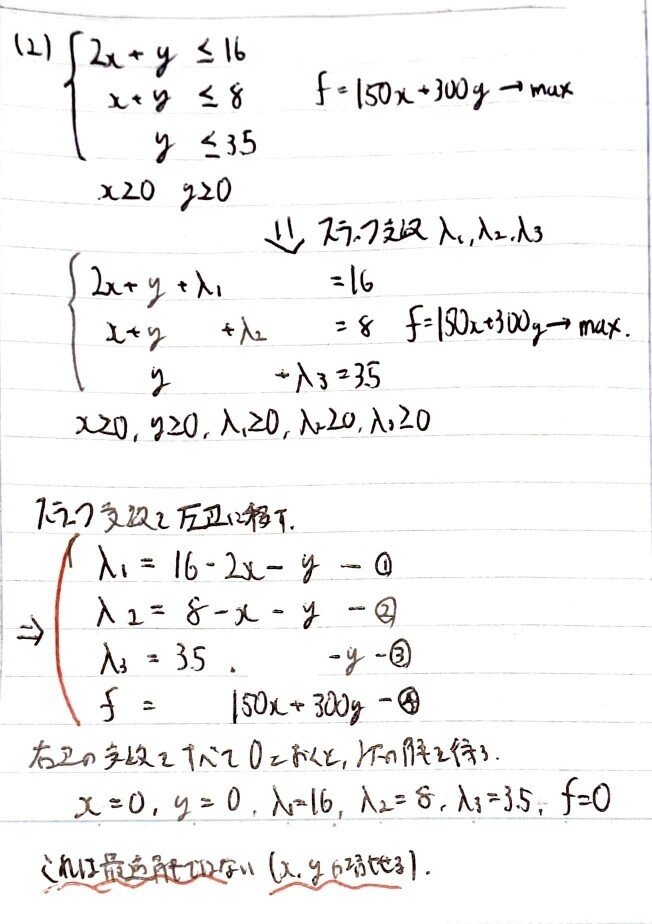 (2) 2x + y ≤ 16
x + y ≤ 8 f = 150x + 300y → max
y ≤ 3.5
x ≥ 0 y ≥ 0
⇓ スラック変数 λ₁, λ₂, λ₃
2x + y + λ₁ = 16
x + y + λ₂ = 8 f = 150x + 300y → max.
y + λ₃ = 3.5
x ≥ 0, y ≥ 0, λ₁ ≥ 0, λ₂ ≥ 0, λ₃ ≥ 0
スラック変数を左辺に移す.
⇒ λ₁ = 16 - 2x - y - ①
λ₂ = 8 - x - y - ②
λ₃ = 3.5 . - y - ③
f = 150x + 300y - ④
右辺の変数をすべて0とおくと, 以下の解を得る.
x = 0, y = 0, λ₁ = 16, λ₂ = 8, λ₃ = 3.5, f = 0
これは最適解ではない (x, y が増やせる).